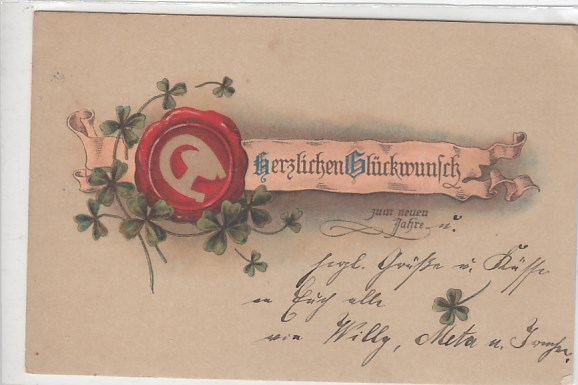 Herzlichen Glückwunsch
zum neuen
Jahre. u.
herzl. Grüße u. Küsse
an Euch alle
von Willy, Meta u.